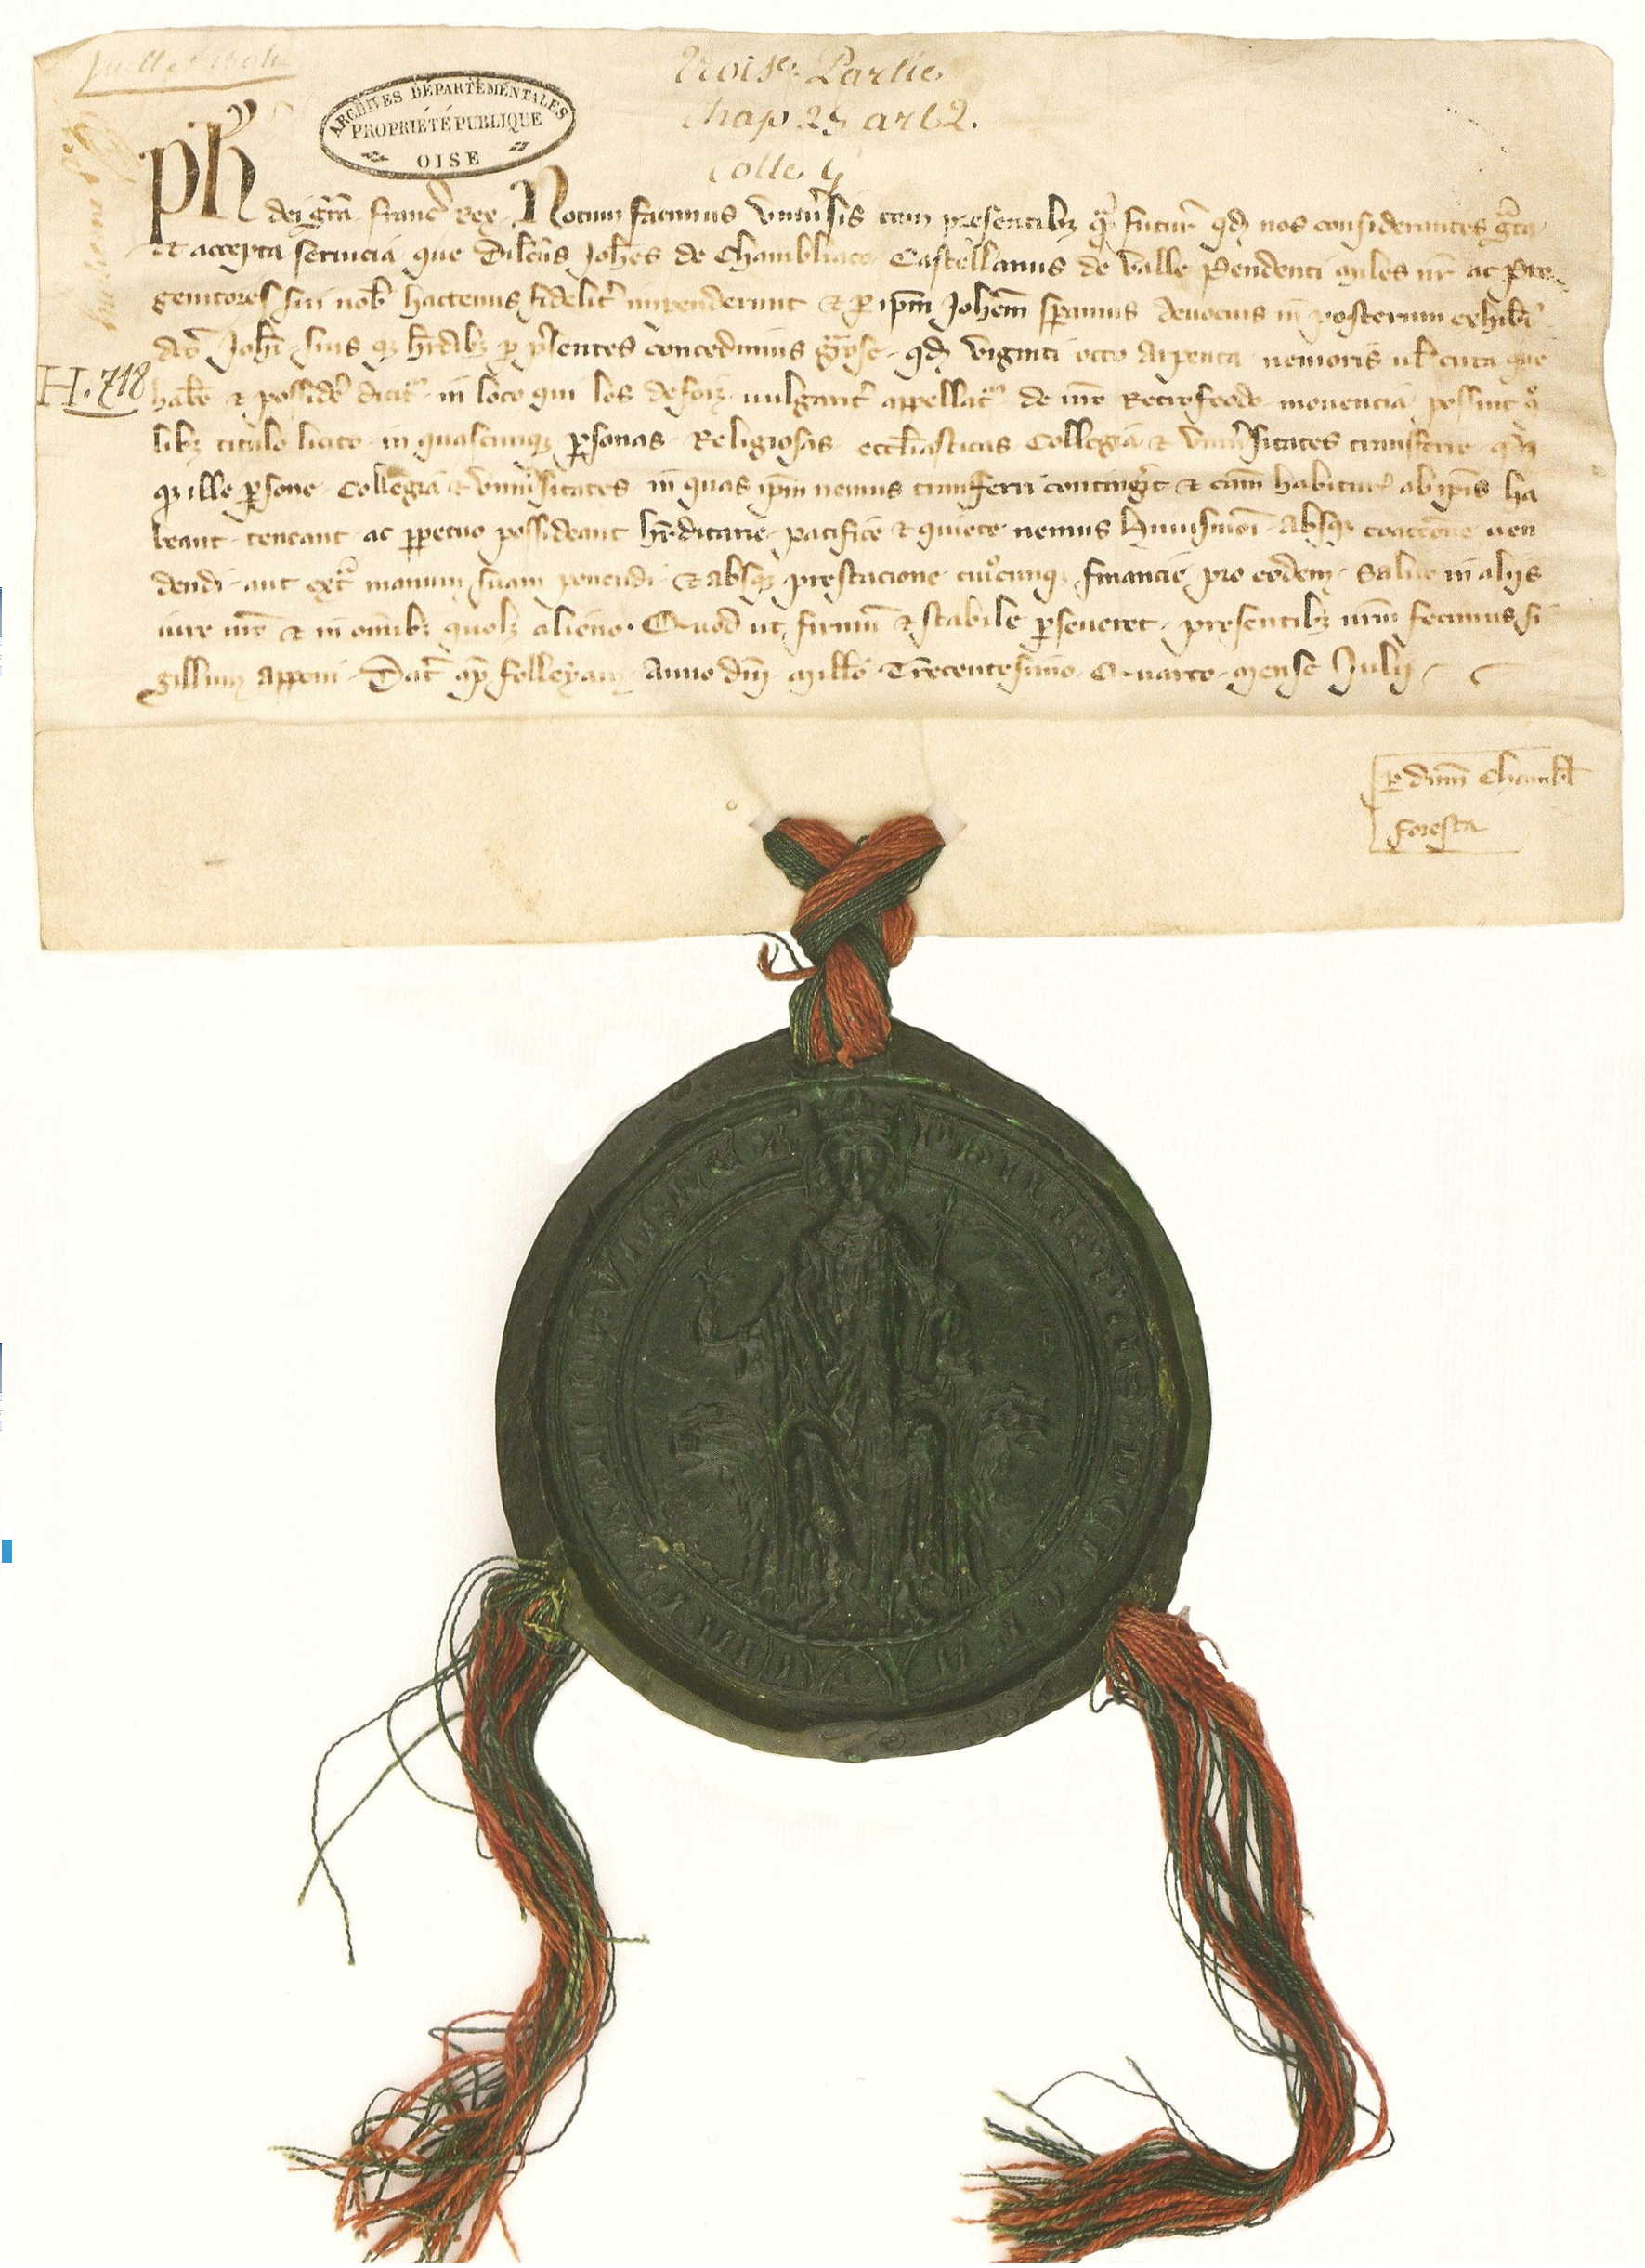 Juillet 1304
Troise. Partie
Chap 25 art 2.
Cotte
ARCHIVES DÉPARTEMENTALES
PROPRIÉTÉ PUBLIQUE
OISE
Ph̓
dei gr̃a Franc̃ Rex. Notum facimus Uniũsis tam presentibꝫ qͣ futur̃ qđ nos considerantes grãta
et accepta seruicia que Dilc̃us Joh̃es de Chambliaco Castellanus de Valle Pendenti miles nr̃ ac Pro
genitores sui nob̃ hactenus fidelit̃ impenderunt et ꝑ ip̃m Joh̃em sp̃amus deuocius in posterum exhib̃i
dc̃o Joh̃i suis qꝫ h̃rdibꝫ ꝑ p̃sentes concedimus gr̃ose qđ viginti octo arpenta nemoris ul̃ circa que
hab̃e et possid̃e dicit̃ in loco qui les defoiz uulgarit̃ appellat̃ de nr̃o Retrofeodo mouencia possint qͦ
libꝫ titulo licito in quascumqꝫ ꝑsonas Religiosas eccl̃iasticas Collegia et Uniũsitates transferre
qꝫ ille ꝑsone Collegia et Uniũsitates in quas ip̃m nemus transferri contingẽt et cãm habitur̃ ab ip̃is ha
beant teneant ac ꝑpetuo possideant h̃rditarie pacifice et quiete nemus huiusmõi absqꝫ coactione uen
dendi aut ext̃ manum suam ponendi et absqꝫ prestacione cuiͦcunqꝫ financie pro eodem Saluo in alijs
iure nr̃o et in om̃ibꝫ quolꝫ alieno. Quod ut firmũ et stabile ꝑseueret presentibꝫ nr̃m fecimus si
gillum apponi Dat̃ ap̃ folleyam Anno dñi mill̃o Trecentesimo Quarto mense Julij
H. 718
ꝑ dñm Chambl̃
foresta